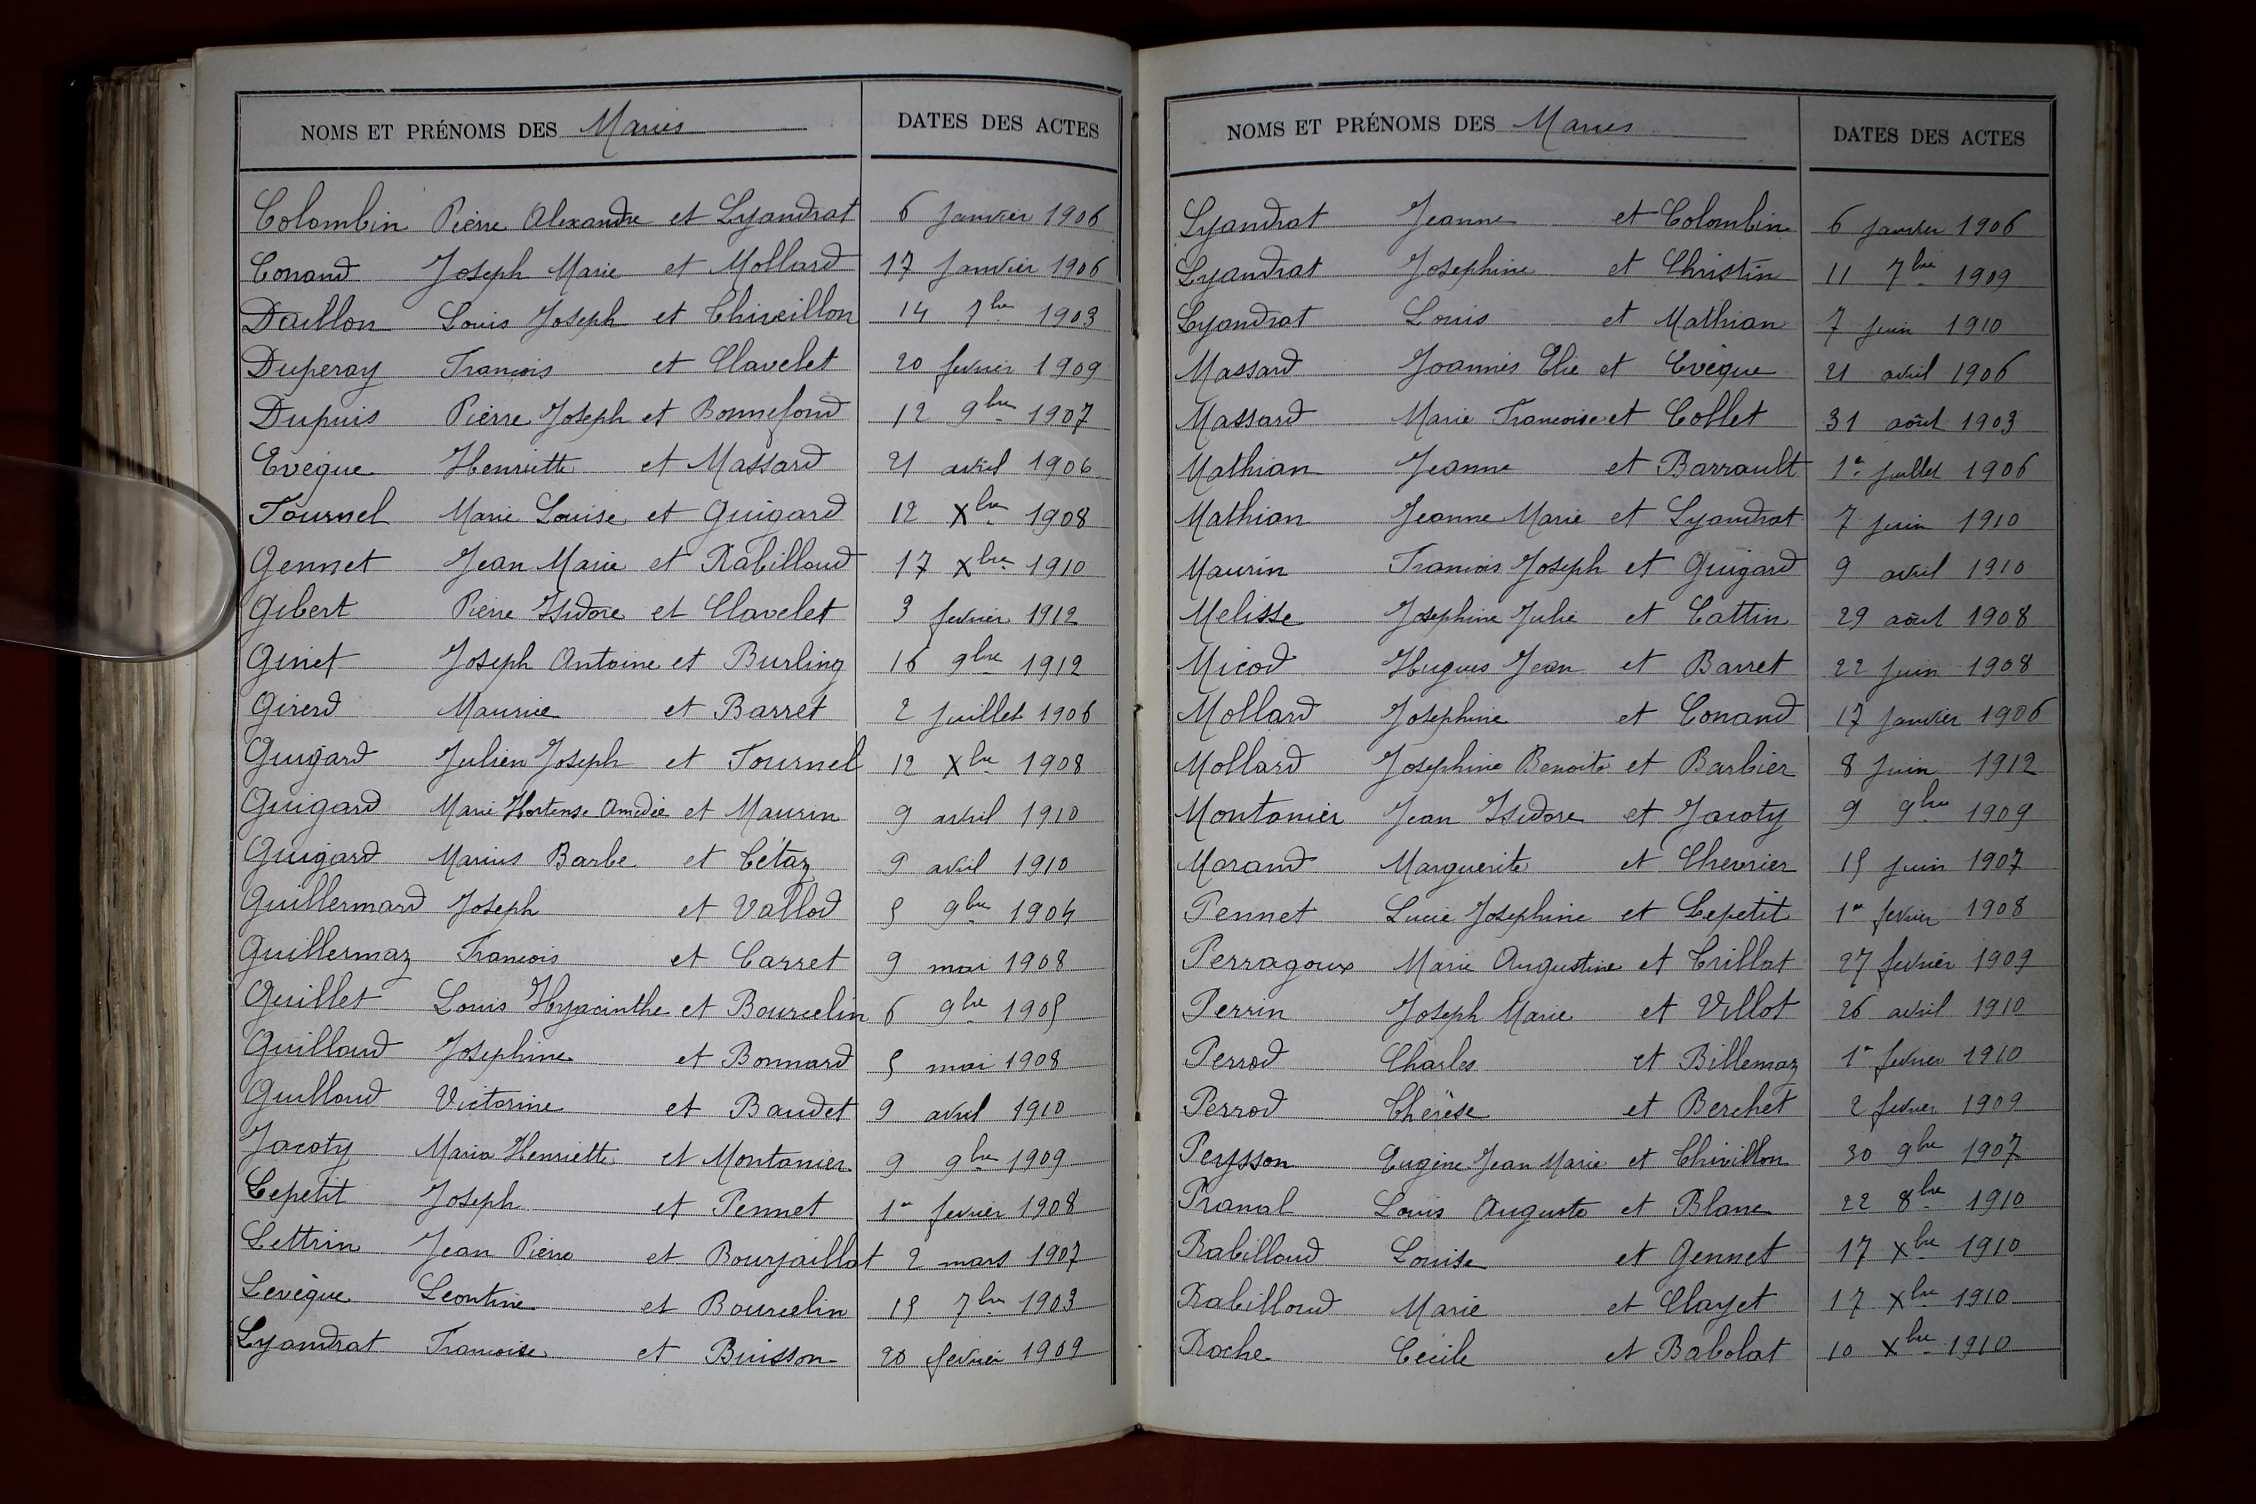 NOMS ET PRÉNOMS DES Mariés DATES DES ACTES
Colombin Pierre Alexandre et Lyandrat 6 janvier 1906
Conand Joseph Marie et Mollard 17 janvier 1906
Daillon Louis Joseph et Thiveillon 14 7bre 1903
Duperay Francois et Clavelet 20 fevrier 1909
Dupuis Pierre Joseph et Bonnefond 12 9bre 1907
Evêque Henriette et Massard 21 avril 1906
Fournel Marie Louise et Guigard 12 Xbre 1908
Gennet Jean Marie et Rabilloud 17 Xbre 1910
Gibert Pierre Isidore et Clavelet 3 fevrier 1912
Ginet Joseph Antoine et Burling 16 9bre 1912
Girerd Maurice et Barret 2 juillet 1906
Guigard Julien Joseph et Fournel 12 Xbre 1908
Guigard Marie Hortense Amédée et Maurin 9 avril 1910
Guigard Marius Barbe et Cétaz 9 avril 1910
Guillermard Joseph et Vallod 5 9bre 1904
Guillermaz Francois et Carret 9 mai 1908
Guillet Louis Hyacinthe et Bourcelin 6 9bre 1905
Guilloud Josephine et Bonnard 5 mai 1908
Guilloud Victorine et Baudet 9 avril 1910
Jacoty Maria Henriette et Montanier 9 9bre 1909
Lepetit Joseph et Pennet 1er fevrier 1908
Lettrin Jean Pierre et Bourjaillat 2 mars 1907
Levêque Leontine et Bourcelin 15 7bre 1903
Lyandrat Francoise et Buisson 20 fevrier 1909
NOMS ET PRÉNOMS DES Mariés DATES DES ACTES
Lyandrat Jeanne et Colombin 6 janvier 1906
Lyandrat Josephine et Christin 11 7bre 1909
Lyandrat Louis et Mathian 7 juin 1910
Massard Joannès Elie et Evêque 21 avril 1906
Massard Marie Francoise et Collet 31 août 1903
Mathian Jeanne et Barrault 1er juillet 1906
Mathian Jeanne Marie et Lyandrat 7 juin 1910
Maurin Francois Joseph et Guigard 9 avril 1910
Melisse Josephine Julie et Cattin 29 août 1908
Micod Hugues Jean et Barret 22 juin 1908
Mollard Josephine et Conand 17 janvier 1906
Mollard Josephine Benoite et Barbier 8 juin 1912
Montanier Jean Isidore et Jacoty 9 9bre 1909
Morand Marguerite et Chevrier 15 juin 1907
Pennet Lucie Josephine et Lepetit 1er fevrier 1908
Perragoux Marie Augustine et Trillat 27 fevrier 1909
Perrin Joseph Marie et Villot 26 avril 1910
Perrod Charles et Billemaz 1er fevrier 1910
Perrod Thérèse et Berchet 2 fevrier 1909
Peysson Eugène Jean Marie et Thivillon 30 9bre 1907
Pramal Louis Auguste et Blanc 22 8bre 1910
Rabilloud Louise et Gennet 17 Xbre 1910
Rabilloud Marie et Clayet 17 Xbre 1910
Roche Cécile et Babolat 10 Xbre 1910